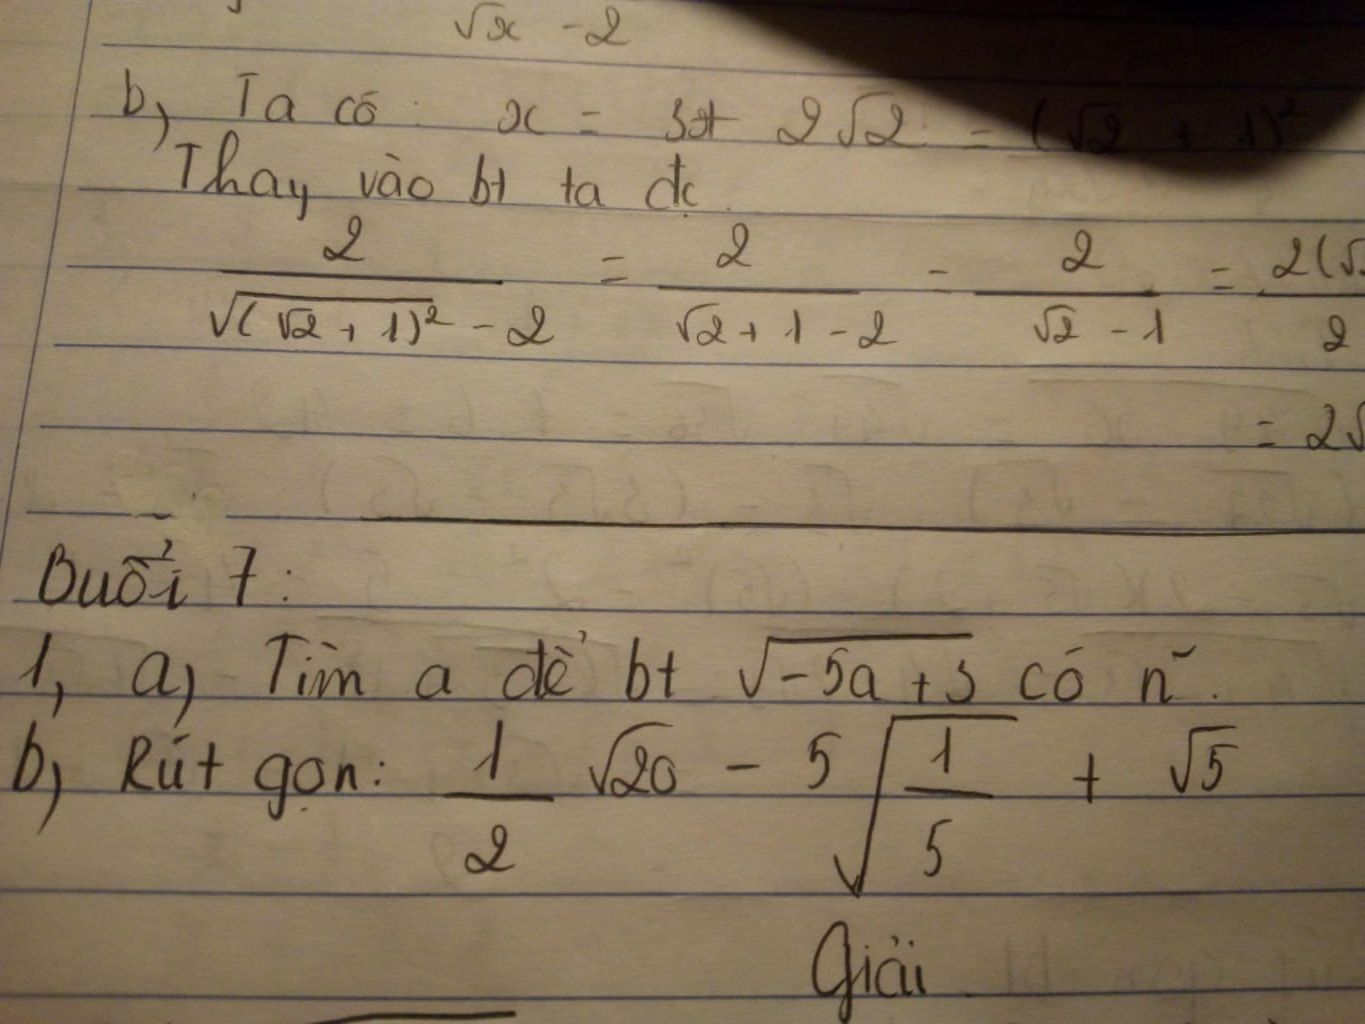 √x - 2
b, Ta có: x = 3 + 2√2 = (√2 + 1)²
Thay vào bt ta đc
2/(√(√2 + 1)² - 2) = 2/(√2 + 1 - 2) = 2/(√2 - 1) = 2(√2
= 2√
Buổi 7:
1, a, Tìm a để bt √(-5a + 3) có n̄.
b, Rút gọn: 1/2 √20 - 5√(1/5) + √5
Giải